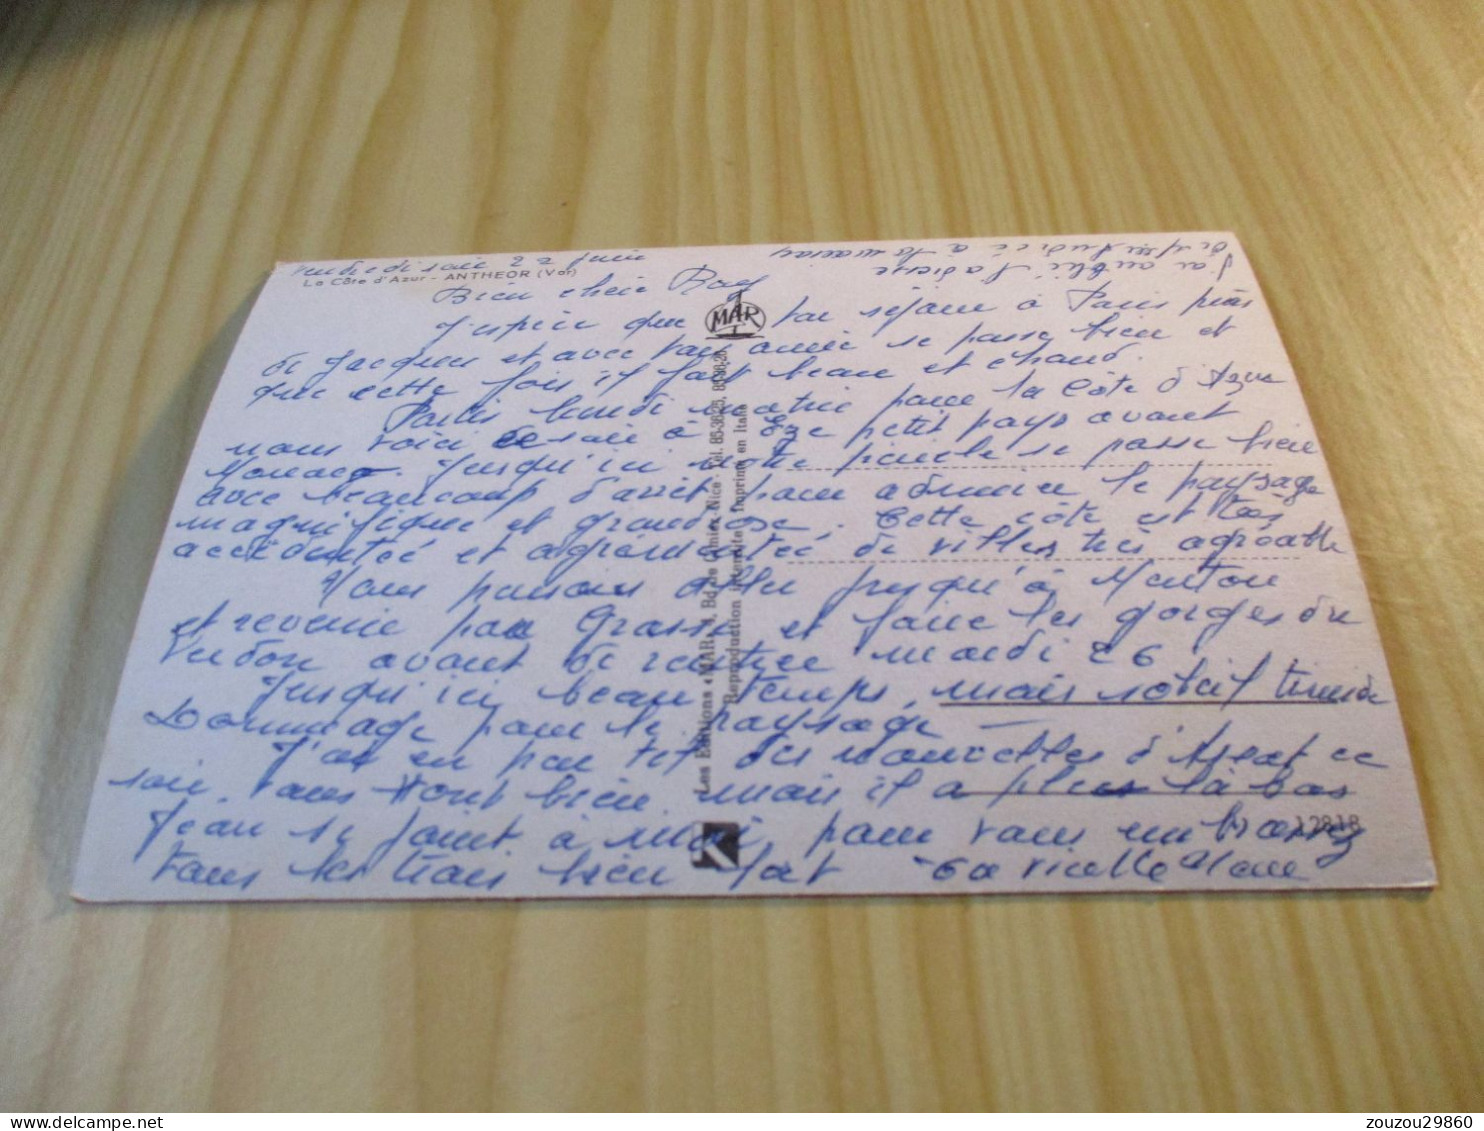 Vendredi soir 22 juin
La Côte d'Azur - ANTHEOR (Var)
J'ai oublié l'adresse
Bien cher Roy
J'espère que ton séjour à Paris près
de Jacques et avec ton amie se passe bien et
que cette fois il fait beau et chaud.
Partis lundi matin pour la Côte d'Azur
nous voici ce soir à Eze petit pays avant
Monaco. Jusqu'ici notre périple se passe bien
avec beaucoup d'arrêt pour admirer le paysage
magnifique et grandiose. Cette côte est très
accidentée et agrémentée de villes très agréable
Nous pensons aller jusqu'à Menton
et revenir par Grasse et faire les gorges du
Verdon avant de rentrer mardi 26
Jusqu'ici beau temps, mais soleil timide
Dommage pour le paysage -
J'ai eu par tel des nouvelles d' ce
soir. Tous vont bien mais il a plu là bas
Jean se joint à moi pour vous embrasser
tous les trois bien fort Ta vieille
MAR
Les Editions « MAR », Bd de Cimiez, Nice - Tél. 85-3628,
Reproduction interdite - Imprimé en Italie
12818
zouzou29860